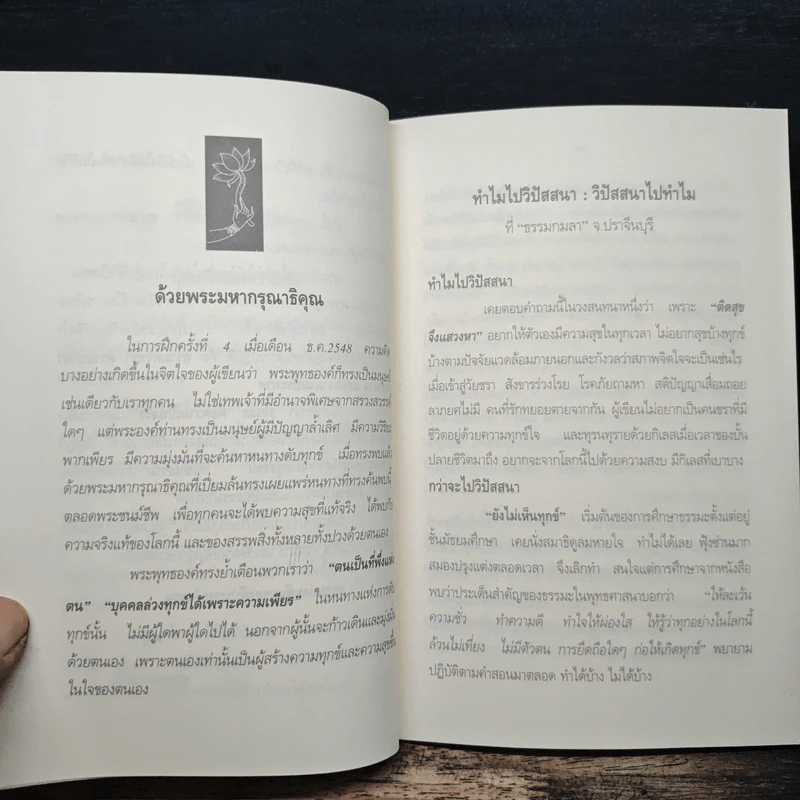 ด้วยพระมหากรุณาธิคุณ
ในการฝึกครั้งที่ 4 เมื่อเดือน ธ.ค.2548 ความคิด
บางอย่างเกิดขึ้นในจิตใจของผู้เขียนว่า พระพุทธองค์ก็ทรงเป็นมนุษย์
เช่นเดียวกับเราทุกคน ไม่ใช่เทพเจ้าที่มีอำนาจพิเศษจากสรวงสวรรค์
ใดๆ แต่พระองค์ท่านทรงเป็นมนุษย์ผู้มีปัญญาล้ำเลิศ มีความวิริยะ
พากเพียร มีความมุ่งมั่นที่จะค้นหาหนทางดับทุกข์ เมื่อทรงพบแล้ว
ด้วยพระมหากรุณาธิคุณที่เปี่ยมล้นทรงเผยแพร่หนทางที่ทรงค้นพบนี้
ตลอดพระชนม์ชีพ เพื่อทุกคนจะได้พบความสุขที่แท้จริง ได้พบกับ
ความจริงแท้ของโลกนี้ และของสรรพสิ่งทั้งหลายทั้งปวงด้วยตนเอง
พระพุทธองค์ทรงย้ำเตือนพวกเราว่า "ตนเป็นที่พึ่งแห่ง
ตน" "บุคคลล่วงทุกข์ได้เพราะความเพียร" ในหนทางแห่งการดับ
ทุกข์นั้น ไม่มีผู้ใดพาผู้ใดไปได้ นอกจากผู้นั้นจะก้าวเดินและมุ่งมั่น
ด้วยตนเอง เพราะตนเองเท่านั้นเป็นผู้สร้างความทุกข์และความสุขขึ้น
ในใจของตนเอง
ทำไมไปวิปัสสนา : วิปัสสนาไปทำไม
ที่ "ธรรมกมลา" จ.ปราจีนบุรี
ทำไมไปวิปัสสนา
เคยตอบคำถามนี้ในวงสนทนาหนึ่งว่า เพราะ "ติดสุข
จึงแสวงหา" อยากให้ตัวเองมีความสุขในทุกเวลา ไม่อยากสุขบ้างทุกข์
บ้างตามปัจจัยแวดล้อมภายนอกและกังวลว่าสภาพจิตใจจะเป็นเช่นไร
เมื่อเข้าสู่วัยชรา สังขารร่วงโรย โรคภัยถามหา สติปัญญาเสื่อมถอย
ลาภยศไม่มี คนที่รักทยอยตายจากกัน ผู้เขียนไม่อยากเป็นคนชราที่มี
ชีวิตอยู่ด้วยความทุกข์ใจ และทุรนทุรายด้วยกิเลสเมื่อเวลาของบั้น
ปลายชีวิตมาถึง อยากจะจากโลกนี้ไปด้วยความสงบ มีกิเลสที่เบาบาง
กว่าจะไปวิปัสสนา
"ยังไม่เห็นทุกข์" เริ่มต้นของการศึกษาธรรมะตั้งแต่อยู่
ชั้นมัธยมศึกษา เคยนั่งสมาธิดูลมหายใจ ทำไม่ได้เลย ฟุ้งซ่านมาก
สมองปรุงแต่งตลอดเวลา จึงเลิกทำ สนใจแต่การศึกษาจากหนังสือ
พบว่าประเด็นสำคัญของธรรมะในพุทธศาสนาบอกว่า "ให้ละเว้น
ความชั่ว ทำความดี ทำใจให้ผ่องใส ให้รู้ว่าทุกอย่างในโลกนี้
ล้วนไม่เที่ยง ไม่มีตัวตน การยึดถือใดๆ ก่อให้เกิดทุกข์" พยายาม
ปฏิบัติตามคำสอนมาตลอด ทำได้บ้าง ไม่ได้บ้าง